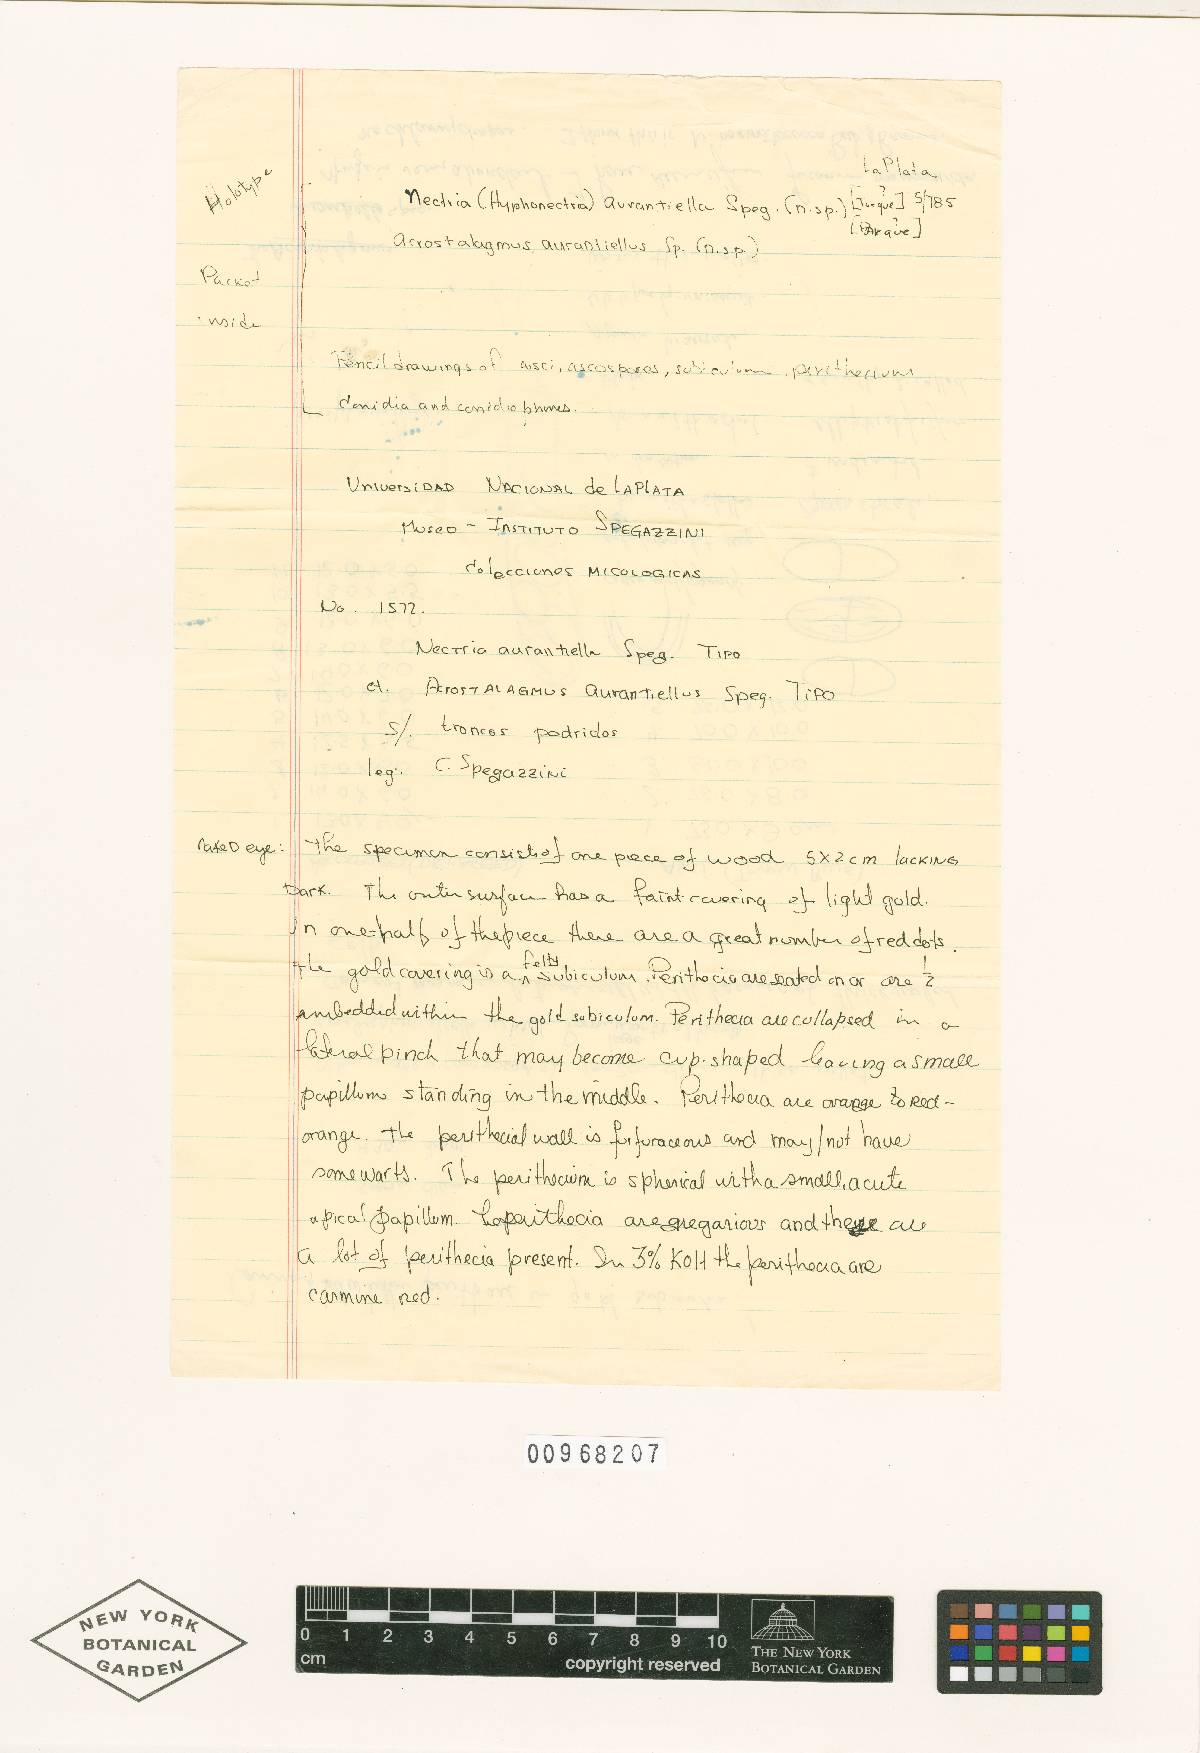 Holotype
La Plata
Nectria (Hyphonectria) aurantiella Speg. (n.sp.) [Parque?] 5/785
[Parque?]
Acrostalagmus aurantiellus Sp. (n.s.p.)
Packet
inside
Pencil drawings of asci, ascospores, subiculum, perithecium
Conidia and conidiophores.
Universidad Nacional de La Plata
Museo - Instituto Spegazzini
Colecciones Micologicas
No. 1572.
Nectria aurantiella Speg. Tipo
et. Acrostalagmus aurantiellus Speg. Tipo
s/. troncos podridos
leg. C. Spegazzini
naked eye: The specimen consists of one piece of wood 5X2 cm lacking
bark. The outer surface has a faint covering of light gold.
In one-half of the piece there are a great number of red dots.
The gold covering is a felty subiculum. Perithecia are seated on or are 1/2
embedded within the gold subiculum. Perithecia are collapsed in a
lateral pinch that may become cup-shaped leaving a small
papillum standing in the middle. Perithecia are orange to red-
orange. The perithecial wall is furfuraceous and may/not have
some warts. The perithecium is spherical with a small, acute
apical papillum. Perithecia are gregarious and there are
a lot of perithecia present. In 3% KOH the perithecia are
carmine red.
00968207
NEW YORK
BOTANICAL
GARDEN
0 1 2 3 4 5 6 7 8 9 10
cm
copyright reserved
THE NEW YORK
BOTANICAL GARDEN